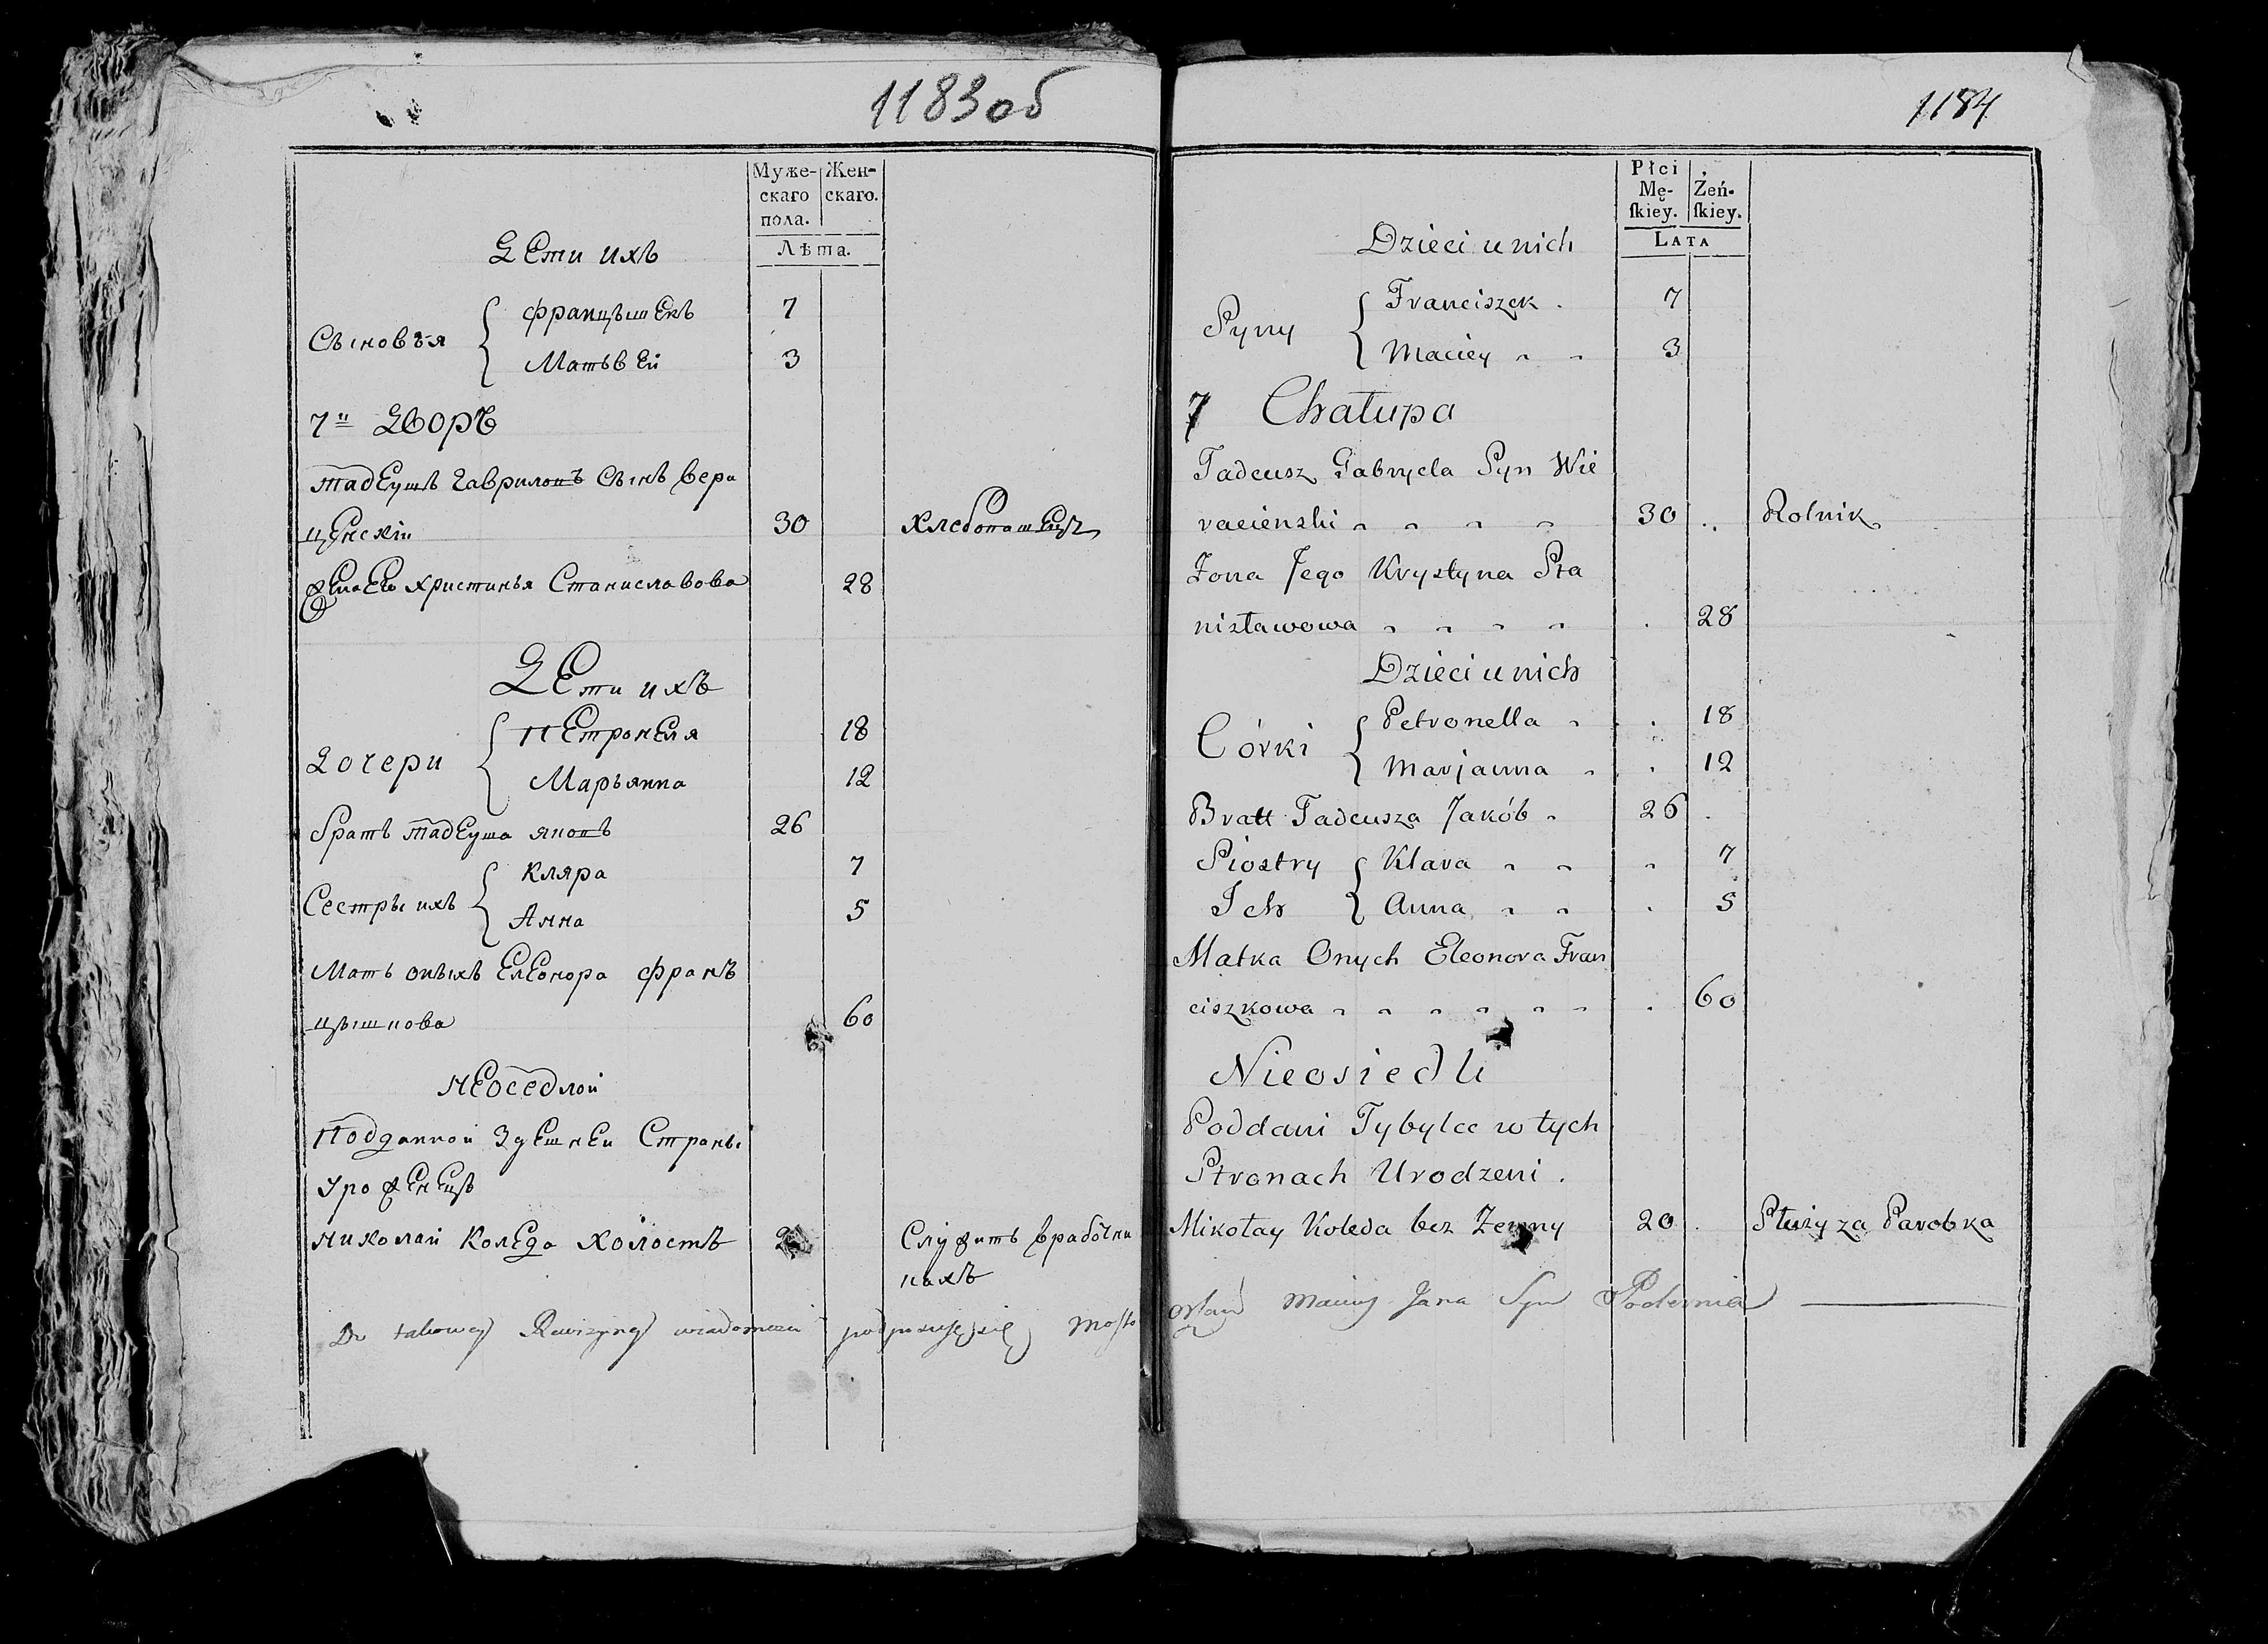 1183об
Муже-
скаго
пола.
Жен-
скаго.
Лѣта.
Дети ихъ
Сыновья
Францышекъ 7
Матьвей 3
7й Дворъ
Тадеушъ Гаврилопъ Сынъ Вери
ценскiй 30 хлебопашецъ
жена Ево Христинья Станиславова 28
Дети ихъ
Дочери
Петронеля 18
Марьянна 12
братъ Тадеуша якопъ 26
Сестры ихъ
Кляра 7
Анна 5
Мать оныхъ Елеонора Франъ
цышкова 60
Неоседлой
Подданной Здешней Страны
Уроженецъ
Николай Коледа Холостъ Служитъ вработни
кахъ
Do takowey Rewizyney wiadomości podpisuję się Mosto
1184
Płci
Mę-
ſkiey.
Żeń-
ſkiey.
LATA
Dzieci u nich
Syny
Franciszek 7
Maciey 3
7 Chałupa
Tadeusz Gabryela Syn Wie
racienski 30 Rolnik
Żona Jego Krystyna Sta
nisławowa 28
Dzieci u nich
Córki
Petronella 18
Marjanna 12
Bratt Tadeusza Jakób 26
Siostry
Ich
Klara 7
Anna 5
Matka Onych Eleonora Fran
ciszkowa 60
Nieosiedli
Poddani Tybylce w tych
Stronach Urodzeni.
Mikołay Koleda bez Żenny 20 Służy za Parobka
Maciey Jana Syn